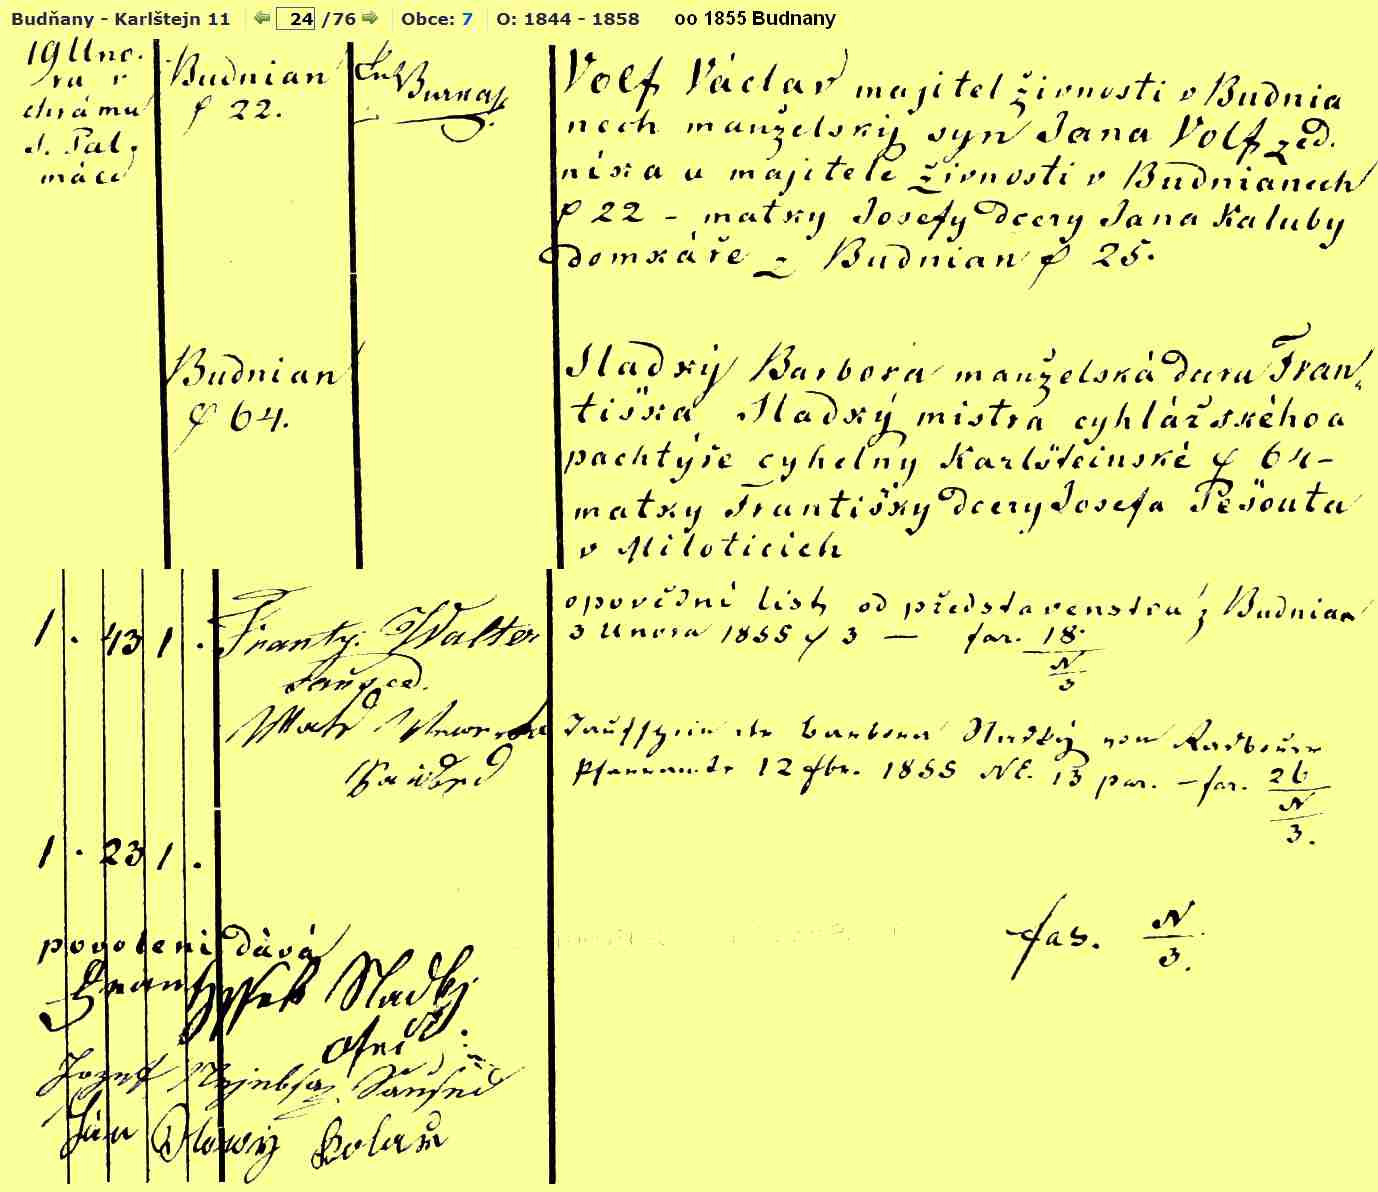 Budňany - Karlštejn 11 24 /76 Obce: 7 O: 1844 - 1858 oo 1855 Budnany
19 Uno.
ra v
chrámu
s. Pal.
máci
Budnian
č 22.
Volf Václav majitel živnosti v Budnia
nech manželský syn Jana Volf zed.
níka a majitele živnosti v Budnianech
č 22 - matky Josefy dcery Jana Kaluby
domkáře z Budnian č 25.
Budnian
č 64.
Sladký Barbora manželská dcera Fran„
tiška Sladký mistra cyhlářského a
pachtýře cyhelny Karlšteinské č 64-
matky Františky dcery Josefa Pešouta
v Miloticích
1 . 43 1 .
Franty. Walter
Saused.
Saused
opovědní list od představenstva z Budnian
3 Unora 1855 č 3 — far. 18.
N
3
Taufschein der Barbora Sladký vom
Pfarramte 12 fbr. 1855 NE. 13 par. - far. 26
N
3.
1 . 23 1 .
povolení dává
Frantyssek Sladky
Otec
Jozef Saused
Jan Nowy Kolař
fas. N
3.